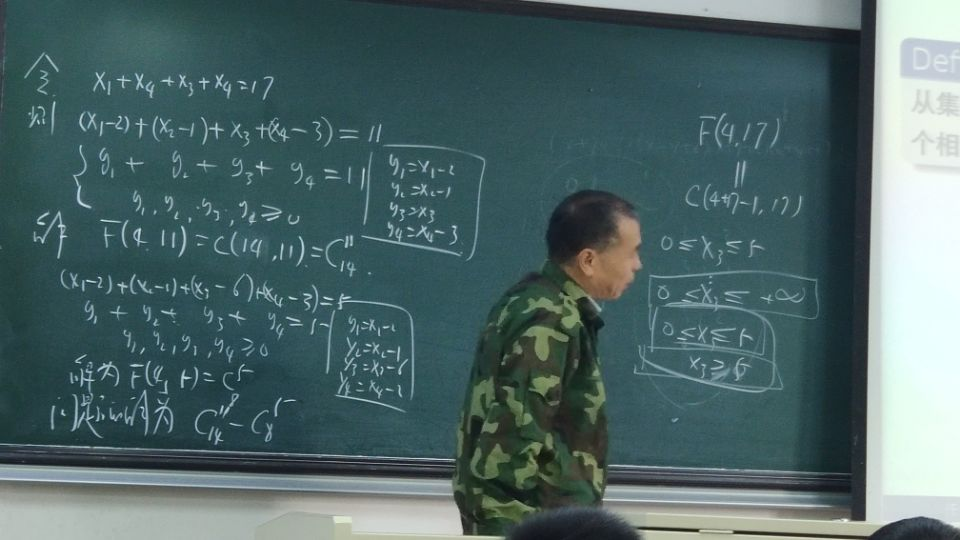 X₁+X₄+X₃+X₄=17
则 (X₁-2)+(X₂-1)+X₃+(X₄-3)=11
y₁+y₂+y₃+y₄=11
y₁,y₂,y₃,y₄≥0
y₁=X₁-2
y₂=X₂-1
y₃=X₃
y₄=X₄-3
F(4,11)=C(14,11)=C₁₄¹¹.
(X₁-2)+(X₂-1)+(X₃-6)+(X₄-3)=5
y₁+y₂+y₃+y₄=5
y₁,y₂,y₃,y₄≥0
y₁=X₁-2
y₂=X₂-1
y₃=X₃-6
y₄=X₄-2
解为 F(4,5)=C₈⁵
C₁₄¹¹-C₈⁵
F(4,17)
||
C(4+17-1,17)
0≤X₃≤5
0≤X₃≤+∞
0≤X₃≤5
X₃≥6
Def
从集
个相